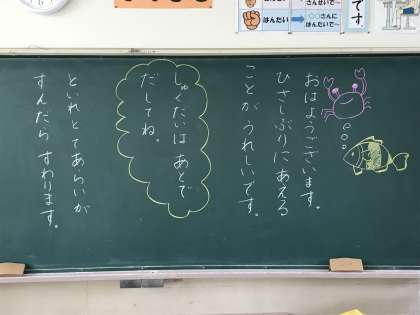 おはようございます。
ひさしぶりにあえる
ことがうれしいです。
しゅくだいは あとで
だしてね。
といれとてあらいが
すんだら すわります。
です。
はんたい
○○さんに
はんたいで〜